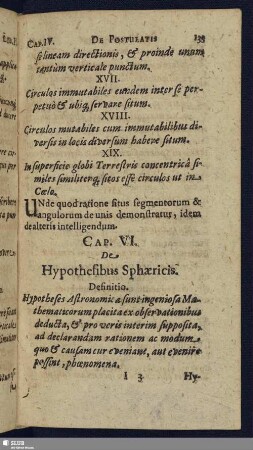 CAP. IV. DE POSTULATIS 133
se lineam directionis, & proinde unum
tantùm verticale punctum.
XVII.
Circulos immutabiles eundem inter se per-
petuò & ubiq; servare situm.
XVIII.
Circulos mutabiles cum immutabilibus di-
versis in locis diversum habere situm.
XIX.
In superficie globi Terrestris concentricâ si-
miles similiterq; sitos esse circulos ut in
Cœlo.
UNde quod ratione situs segmentorum &
angulorum de unis demonstratur, idem
de alteris intelligendum.
CAP. VI.
De
Hypothesibus Sphæricis.
Definitio.
Hypotheses Astronomicæ sunt ingeniosa Ma-
thematicorum placita ex observationibus
deducta, & pro veris interim supposita,
ad declarandam rationem ac modum
quo & causam cur eveniant, aut evenire
possint, phœnomena.
I 3 Hy-